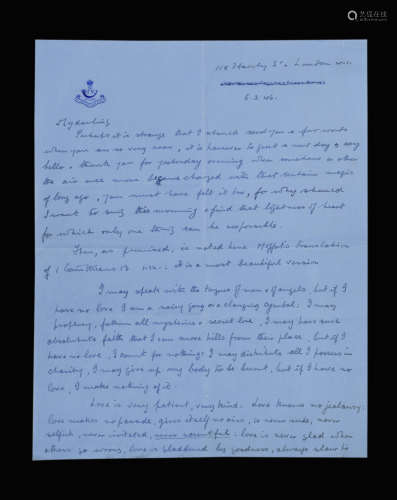 艺狐在线
118 Harley St. London W.1.
6.3.46.
My darling
Perhaps it is strange that I should send you a few words
when you are so very near, it is however to just a next day to say
hello & thank you for yesterday evening when somehow or other
the air once more became charged with that certain magic
of long ago, you must have felt it too, for why should
I want to sing this morning & find that lightness of heart
for which only one thing can be responsible.
Then, as promised, is noted here Moffat's translation
of 1 Corinthians 13 it is a most beautiful version
I may speak with the tongues of men & of angels, but if I
have no love, I am a noisy gong or a clanging cymbal: I may
prophesy, fathom all mysteries & secret lore, I may have such
absolute faith that I can move hills from their place, but if I
have no love, I count for nothing: I may distribute all I possess in
charity, I may give up my body to be burnt, but if I have no
love, I make nothing of it.
Love is very patient, very kind. Love knows no jealousy:
love makes no parade, gives itself no airs, is never rude, never
selfish, never irritated, never resentful: love is never glad when
others go wrong, love is gladdened by goodness, always slow to